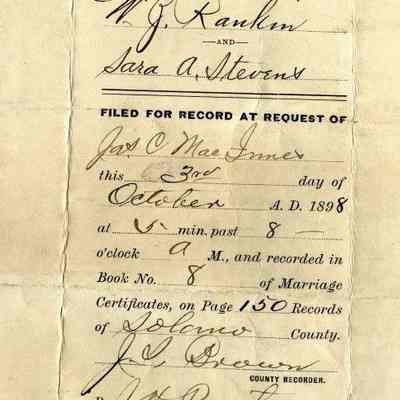 W. J. Rankin
—AND—
Sara A. Stevens
FILED FOR RECORD AT REQUEST OF
Jas. C. MacInnes
this 3rd day of
October A. D. 1898
at 5 min. past 8 —
o'clock A M., and recorded in
Book No. 8 of Marriage
Certificates, on Page 150 Records
of Solano County.
Brown
COUNTY RECORDER.